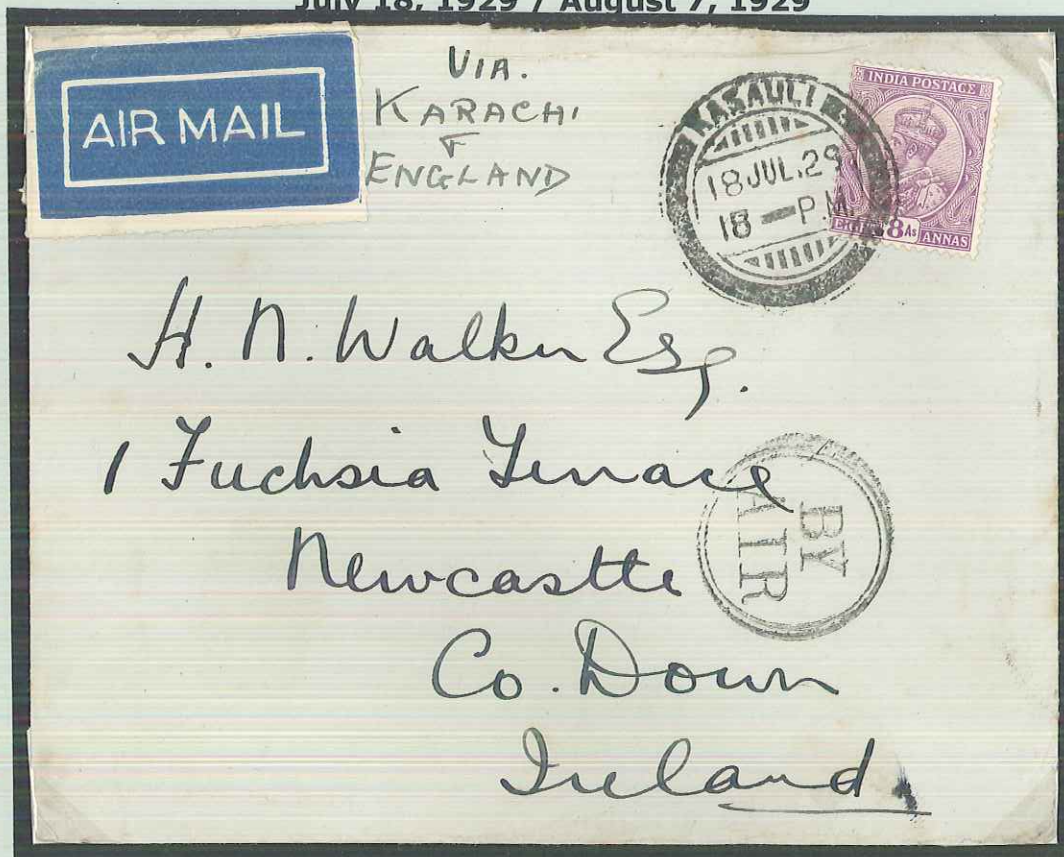 July 18, 1929 / August 7, 1929
AIR MAIL
VIA.
KARACHI
&
ENGLAND
KASAULI
18 JUL.29
18 — P.M.
INDIA POSTAGE
8 As
ANNAS
H. N. Walker Esq.
1 Fuchsia Terrace
Newcastle
Co. Down
Ireland
BY
AIR